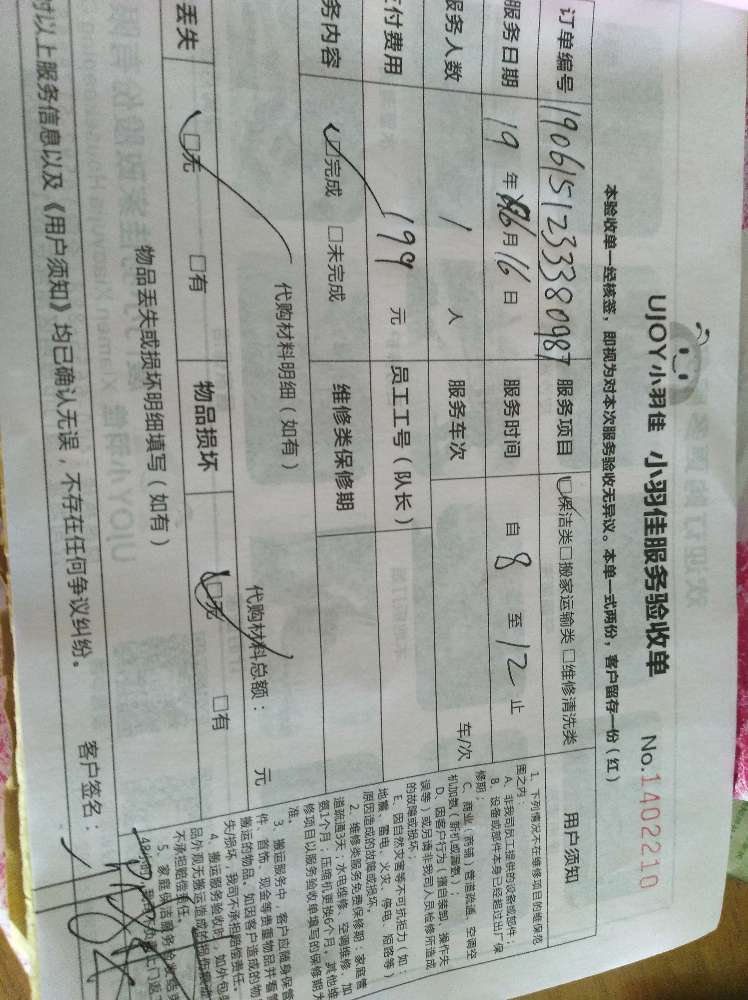 UJOY小羽佳 小羽佳服务验收单 No.1402210
本验收单一经核签，即视为对本次服务验收无异议。本单一式两份，客户留存一份（红）
订单编号 190615123338098７ 服务项目 保洁类□搬家运输类□维修清洗类 用户须知
服务日期 19年 6月16日 服务时间 自 8 至 12 止
服务人数 1 人 服务车次 车/次
付费用 199 元 员工工号（队长）
务内容 ☑完成 □未完成 维修类保修期
代购材料明细（如有） 代购材料总额： 元
丢失 □无 □有 物品损坏 □无 □有
物品丢失或损坏明细填写（如有）
对以上服务信息以及《用户须知》均已确认无误，不存在任何争议纠纷。
客户签名：
1、下列情况不在维修项目的维保范
围之内：
A、非我司员工提供的设备或部件；
B、设备或部件本身已经超过出厂保
修期；
C、商业（商铺）管道疏通、空调空
机加氨（新机或漏氨）；
D、因客户行为（擅自装卸、操作失
误等）或另请非我司人员检修所造成
的故障或损坏；
E、因自然灾害等不可抗拒力（如：
地震、雷电、火灾、停电、短路等）
原因造成的故障或损坏。
2、维修类服务免费保修期：家庭管
道疏通3天；水电维修、空调维修、加
氨1个月；压缩机更换6个月，其他维
修项目以服务验收单填写的保修期为
准。
3、搬运服务中，客户应随身保管
件、首饰、现金等贵重物品并看管
搬运的物品。如因客户造成的物
失/损坏，我司不承担赔偿责任。
4、搬运服务验收时，如外包装
品外观无搬运造成的
不承担赔偿责任。
5、家庭保洁服务验收
48小时